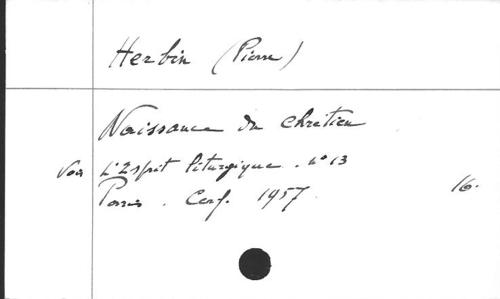 Herbin (Pierre)
Naissance du chrétien
Voir L'Esprit liturgique. n° 13
Paris. Cerf. 1957. 16.